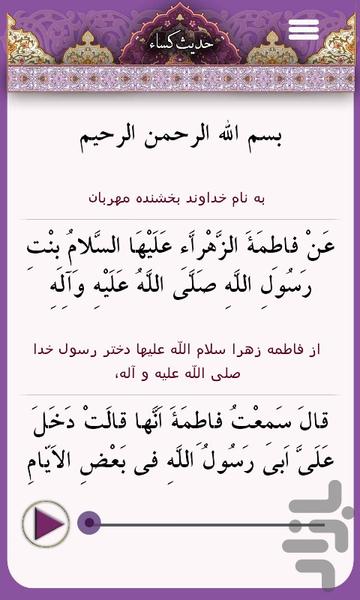 حدیث کساء
بسم الله الرحمن الرحیم
به نام خداوند بخشنده مهربان
عَنْ فاطِمَةَ الزَّهْرآءِ عَلَیْهَا السَّلامُ بِنْتِ
رَسُولِ اللَّهِ صَلَّى اللَّهُ عَلَیْهِ وَآلِهِ
از فاطمه زهرا سلام اللّه علیها دختر رسول خدا
صلی اللّه علیه و آله،
قالَ سَمِعْتُ فاطِمَةَ اَنَّها قالَتْ دَخَلَ
عَلَىَّ اَبى رَسُولُ اللَّهِ فى بَعْضِ الاَیّامِ
بازار